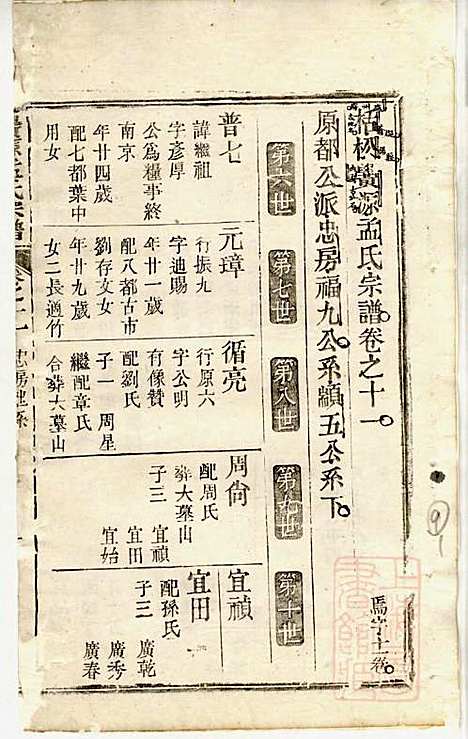 栝松黃源孟氏宗譜卷之十一
為字十一卷
原都公派忠房福九公系顯五公系下
第六世
第七世
第八世
第九世
第十世
普七
諱繼祖
字彥厚
公為糧事終
南京
年廿四歲
配七都葉中
用女
元璋
行振九
字迪賜
年廿一歲
配八都古市
劉存文女
年廿九歲
女二長適竹
循亮
行原六
字公明
有像贊
配劉氏
子一 周星
繼配章氏
合葬大墓山
周尙
配周氏
葬大墓山
子三 宜禎
宜田
宜始
宜禎
宜田
配孫氏
子三 廣乾
廣秀
廣春
氏宗譜
卷之十一
忠房
91